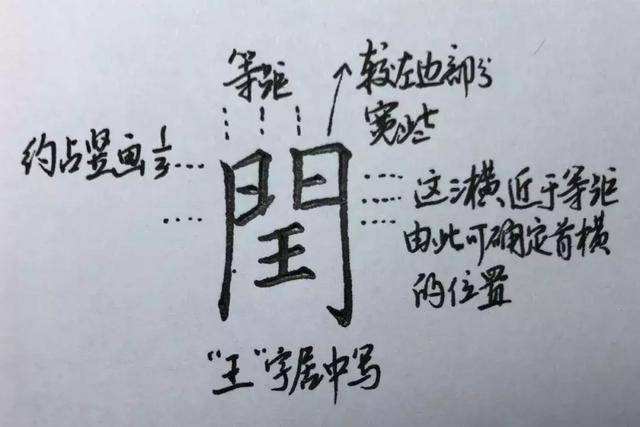 等距
较左边部分
宽些
约占竖画1/3
閏
这三横近于等距
由此可确定首横
的位置
“王”字居中写